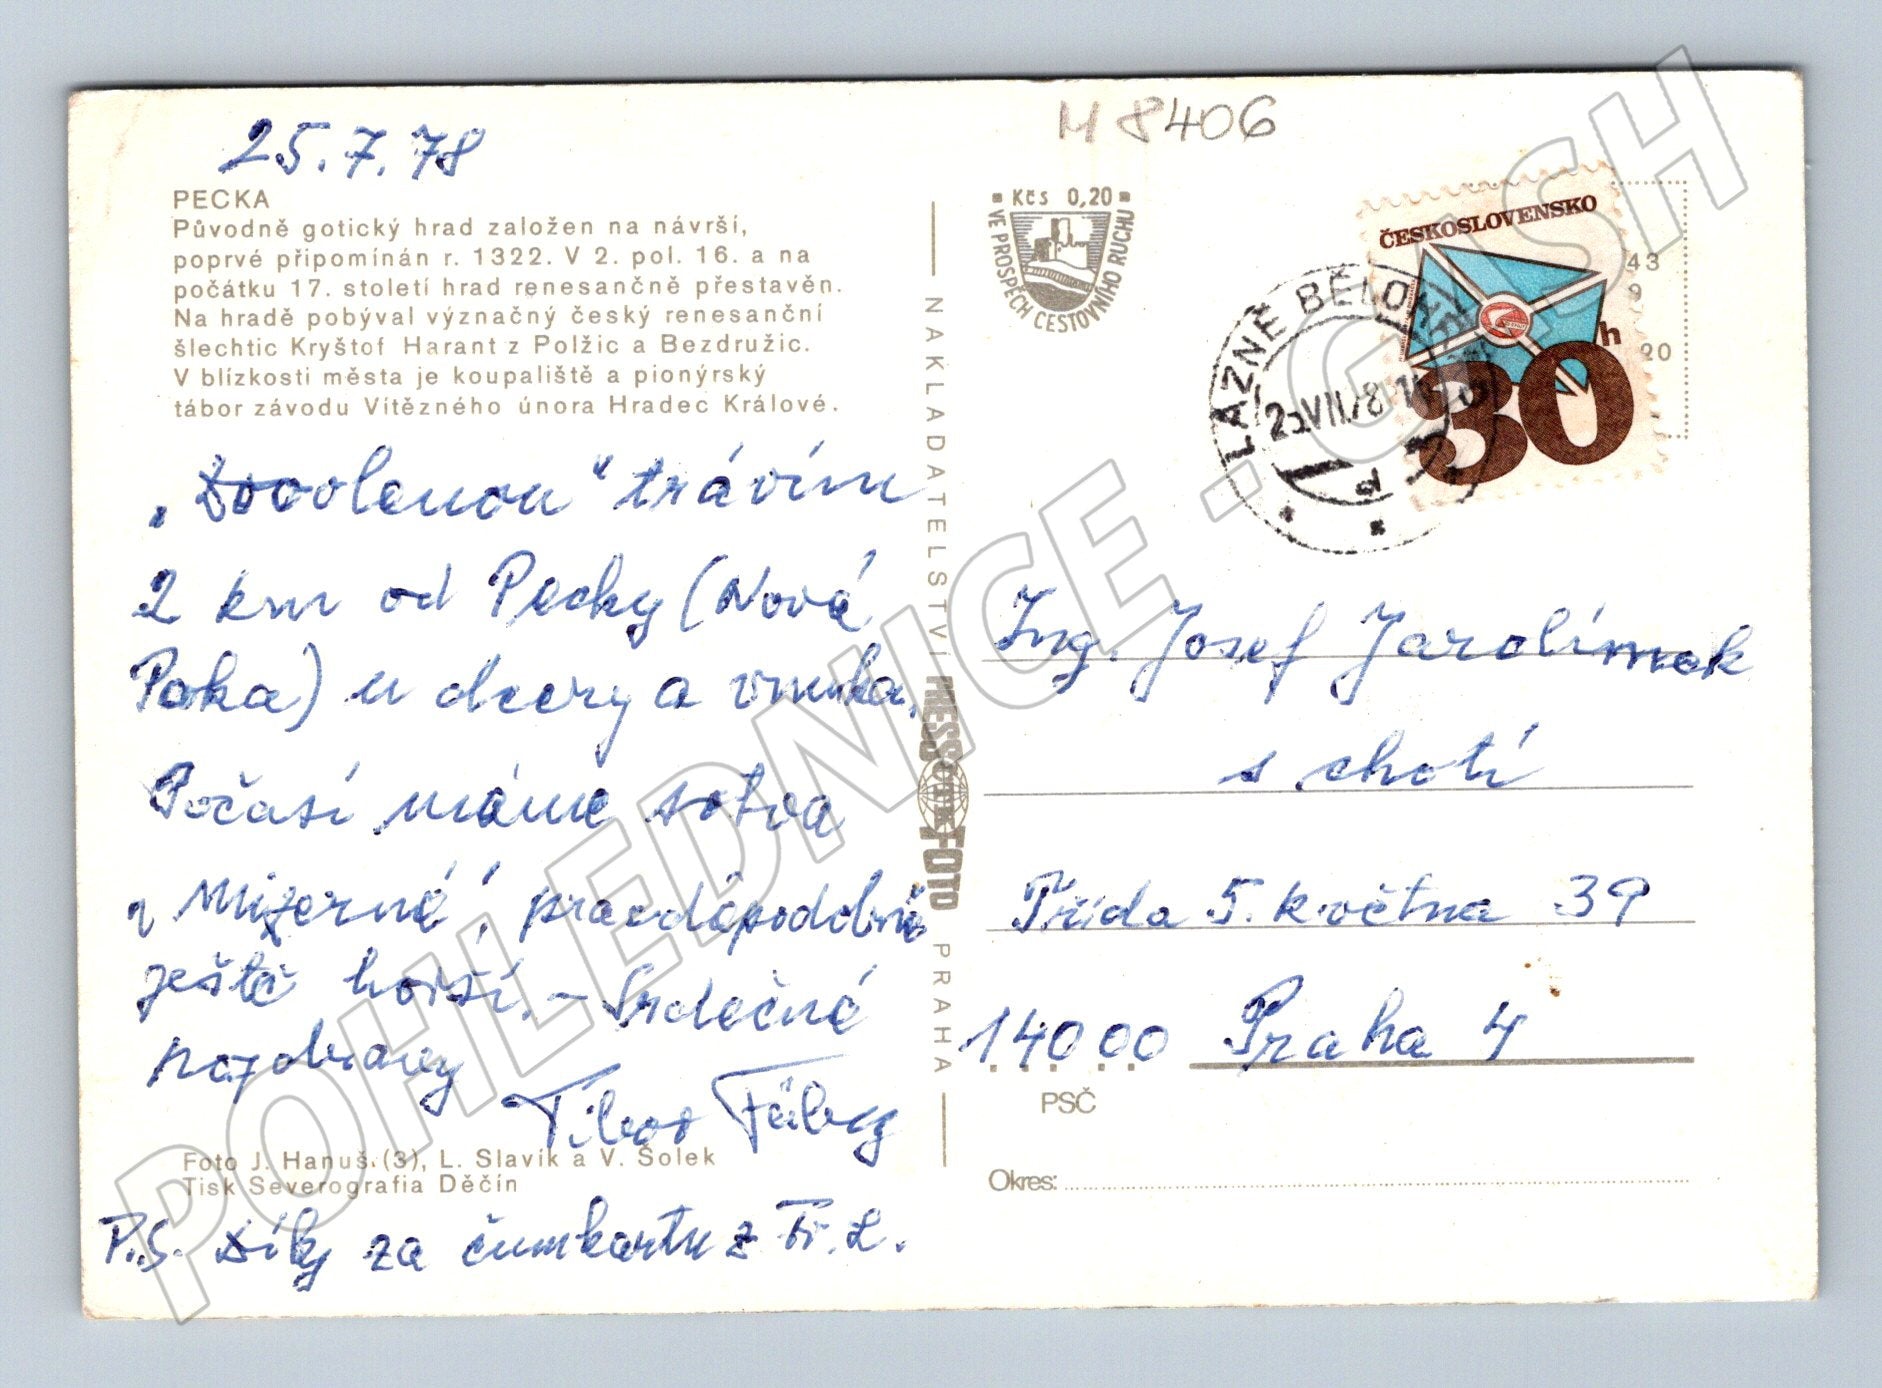 25.7.78
M 8406
PECKA
Původně gotický hrad založen na návrší,
poprvé připomínán r. 1322. V 2. pol. 16. a na
počátku 17. století hrad renesančně přestavěn.
Na hradě pobýval význačný český renesanční
šlechtic Kryštof Harant z Polžic a Bezdružic.
V blízkosti města je koupaliště a pionýrský
tábor závodu Vítězného února Hradec Králové.
„Dovolenou“ trávím
2 km od Pecky (Nová
Paka) u dcery a vnuka.
Počasí máme sotva
„mizerné“, pravděpodobně
ještě horší. – Srdečné
pozdravy
Tibor
Foto J. Hanuš (3), L. Slavík a V. Šolek
Tisk Severografia Děčín
P.S. Díky za čumkartu z Fr. L.
NAKLADATELSTVÍ PRESSFOTO PRAHA
ČTK
Kčs 0,20
VE PROSPĚCH CESTOVNÍHO RUCHU
LÁZNĚ BĚLOHRAD
ČESKOSLOVENSKO
30h
43
9
20
Ing. Josef Jarolímek
s chotí
Třída 5. května 39
14000 Praha 4
PSČ
Okres:
POHLEDNICE - GASH